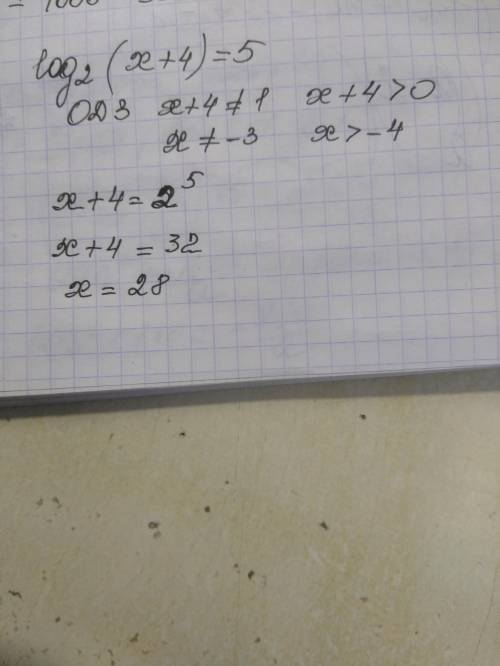 log₂ (x+4) = 5
ОДЗ x+4 ≠ 1 x+4 > 0
x ≠ -3 x > -4
x+4 = 2⁵
x+4 = 32
x = 28